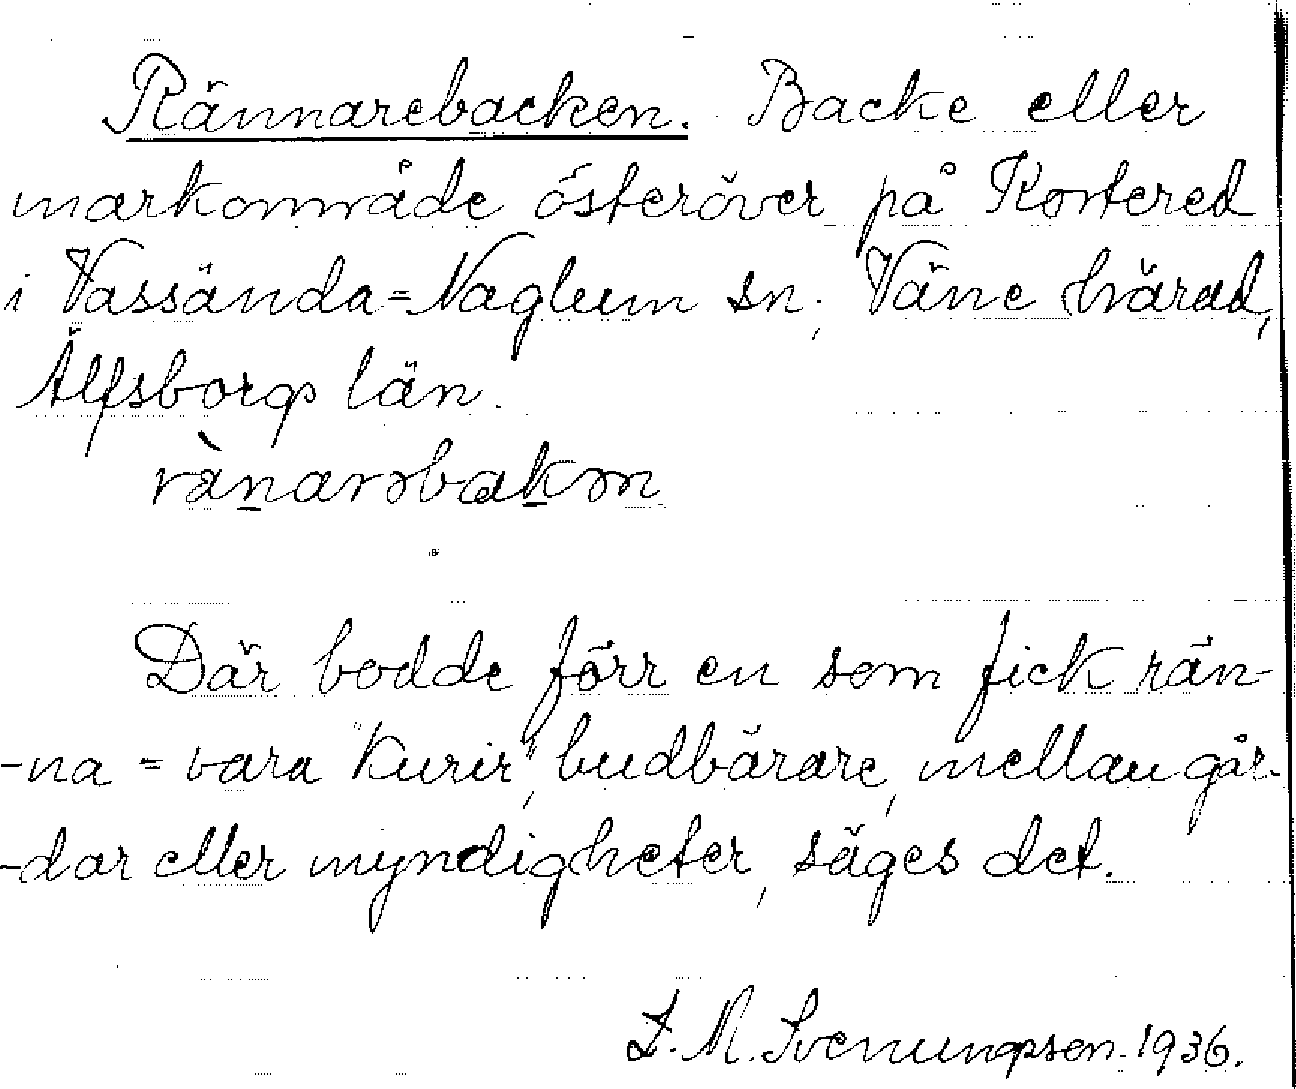 Rännarebacken. Backe eller
markområde österöver på Kortered
i Vassända=Naglum sn, Väne härad,
Älfsborgs län.
rä̀narəbakən
Där bodde förr en som fick rän-
-na = vara "kurir", budbärare, mellan går-
-dar eller myndigheter, säges det.
L. M. Svenungsson. 1936.